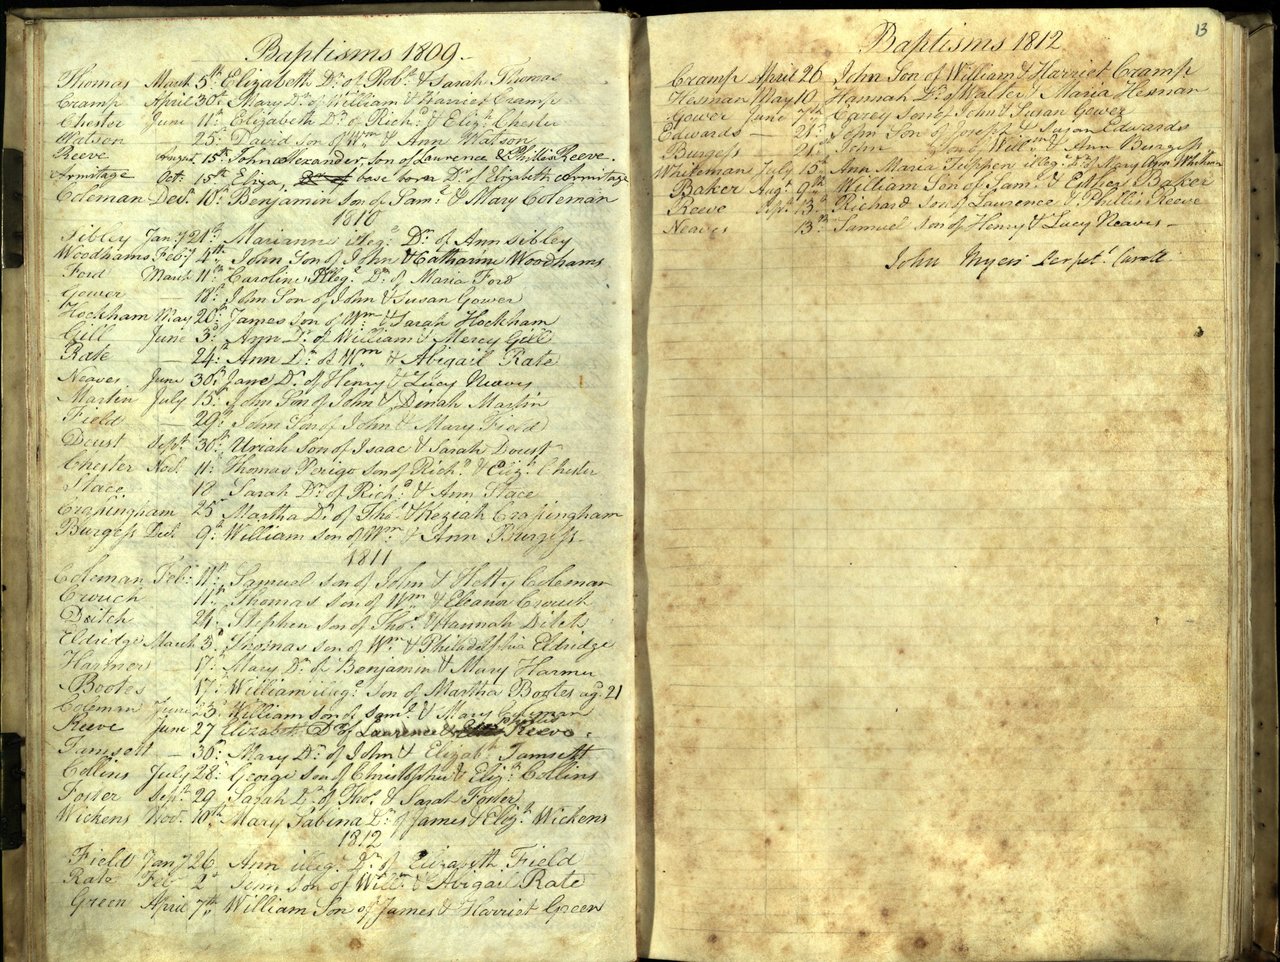 Baptisms 1809
Thomas March 5th Elizabeth Dr. of Robt. & Sarah Thomas
Cramp April 30th Mary Dr. of William & Harriet Cramp
Chester June 11th Elizabeth Dr. of Richd. & Elizth. Chester
Watson 25 David son of Wm. & Ann Watson
Reeve August 15th John Alexander, son of Laurence & Phillis Reeve.
Armitage Oct. 15th Eliza, base born Dr. of Elizabeth Armitage
Coleman Decr. 10th Benjamin Son of Saml. & Mary Coleman
1810
Sibley Jany 21st Marianne illeg. Dr. of Ann Sibley
Woodhams Feby 4th John Son of John & Catharine Woodhams
Ford March 11th Caroline illeg. Dr. of Maria Ford
Gower — 18th John Son of John & Susan Gower
Hockham May 20th James Son of Wm. & Sarah Hockham
Gill June 3d Ann Dr. of William & Mercy Gill
Rate — 24th Ann Dr. of Wm. & Abigail Rate
Neaves June 30th Jane Dr. of Henry & Lucy Neaves
Martin July 15th John Son of John & Dinah Martin
Field — 29th John Son of John & Mary Field
Doust Septr. 30th Uriah Son of Isaac & Sarah Doust
Chester Novr. 11th Thomas Perigo Son of Richd. & Elizth. Chester
Stace 18 Sarah Dr. of Richd. & Ann Stace
Crossingham 25 Martha Dr. of Thos. & Keziah Crossingham
Burgess Decr. 9th William son of Wm. & Ann Burgess
1811
Coleman Feb: 11th Samuel Son of John & Hetty Coleman
Crouch 11th Thomas Son of Wm. & Eleanor Crouch
Ditch 24 Stephen Son of Thos. & Hannah Ditch
Eldridge March 3d Thomas Son of Wm. & Philadelphia Eldridge
Harmer 17th Mary Dr. of Benjamin & Mary Harmer
Bootes 17th William illeg. son of Martha Bootes ag. 21
Coleman June 23 William son of Saml. & Mary Coleman
Reeve June 27 Elizabeth Dr. of Laurence & Phillis Reeve.
Tamsett — 30th Mary Dr. of John & Elizabh. Tamsett
Collins July 28th George Son of Christopher & Elizth. Collins
Foster Septr. 29 Sarah Dr. of Thos. & Sarah Foster
Wickens Novr. 10th Mary Sabina Dr. of James & Elizth. Wickens
1812
Field Jany 26 Ann illeg. Dr. of Elizabeth Field
Rate Feb 2d Son of Willm. & Abigail Rate
Green April 7th William Son of James & Harriet Green
13
Baptisms 1812
Cramp April 26 John Son of William & Harriet Cramp
Hesman May 10 Hannah Dr. of Walter & Maria Hesman
Gower June 7th Carey Son of John & Susan Gower
Edwards — 21st John Son of Joseph & Susan Edwards
Burgess 21st John Son of Willm. & Ann Burgess
Whiteman July 15th Ann Maria illeg. Dr. of Mary Ann Whiteman
Baker Augt. 9th William Son of Saml. & Esther Baker
Reeve Sept. 13th Richard Son of Laurence & Phillis Reeve
Neaves 13th Samuel Son of Henry & Lucy Neaves
John Myers Perpetl.